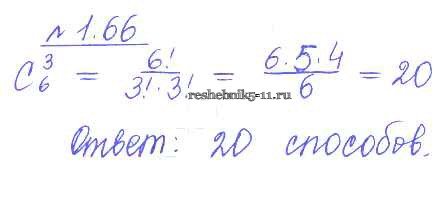 № 1.66
C₆³ = 6!/(3!·3!) = (6·5·4)/6 = 20
reshebnik5-11.ru
Ответ: 20 способов.